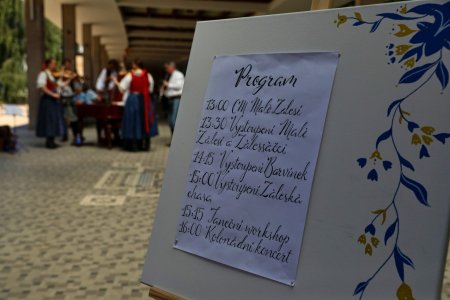 Program
13:00 CM Malé Zálesí
13:30 Vystoupení Malé
Zálesí a Zálesáčci
14:15 Vystoupení Barvínek
15:00 Vystoupení Záleská
chasa
15:15 Taneční workshop
16:00 Kolonádní koncert